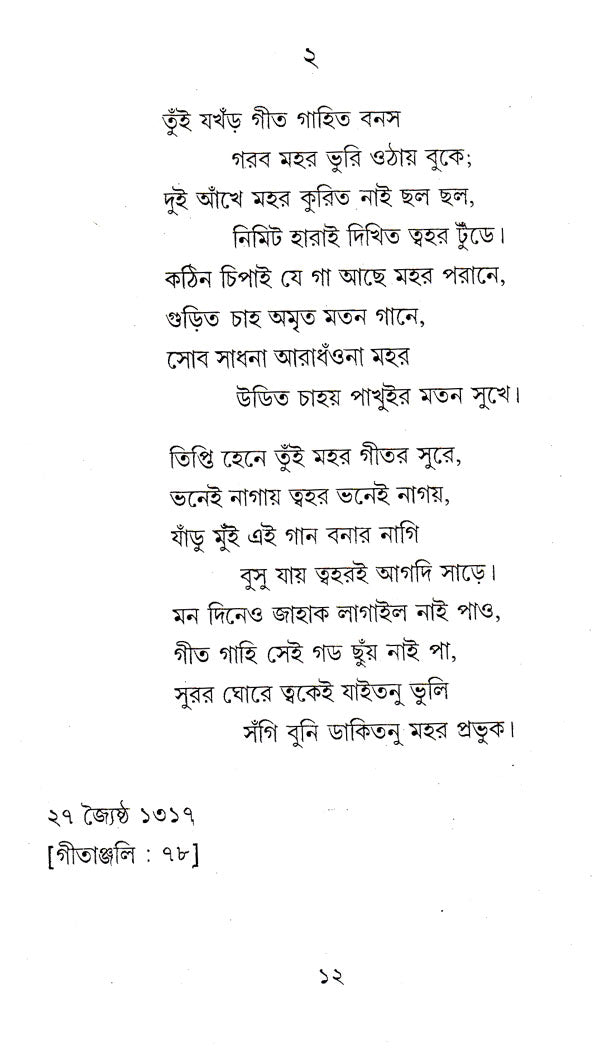 ২
তুঁই যখঁড় গীত গাহিত বনস
গরব মহর ভুরি ওঠায় বুকে;
দুই আঁখে মহর কুরিত নাই ছল ছল,
নিমিট হারাই দিখিত ত্বহর টুঁডে।
কঠিন চিপাই যে গা আছে মহর পরানে,
গুড়িত চাহ অমৃত মতন গানে,
সোব সাধনা আরাধঁওনা মহর
উডিত চাহয় পাখুইর মতন সুখে।
তিপ্তি হেনে তুঁই মহর গীতর সুরে,
ভনেই নাগায় ত্বহর ভনেই নাগয়,
যাঁড়ু মুঁই এই গান বনার নাগি
বুসু যায় ত্বহরই আগদি সাড়ে।
মন দিনেও জাহাক লাগাইল নাই পাও,
গীত গাহি সেই গড ছুঁয় নাই পা,
সুরর ঘোরে ত্বকেই যাইতনু ভুলি
সঁগি বুনি ডাকিতনু মহর প্রভুক।
২৭ জ্যৈষ্ঠ ১৩১৭
[গীতাঞ্জলি : ৭৮]
১২